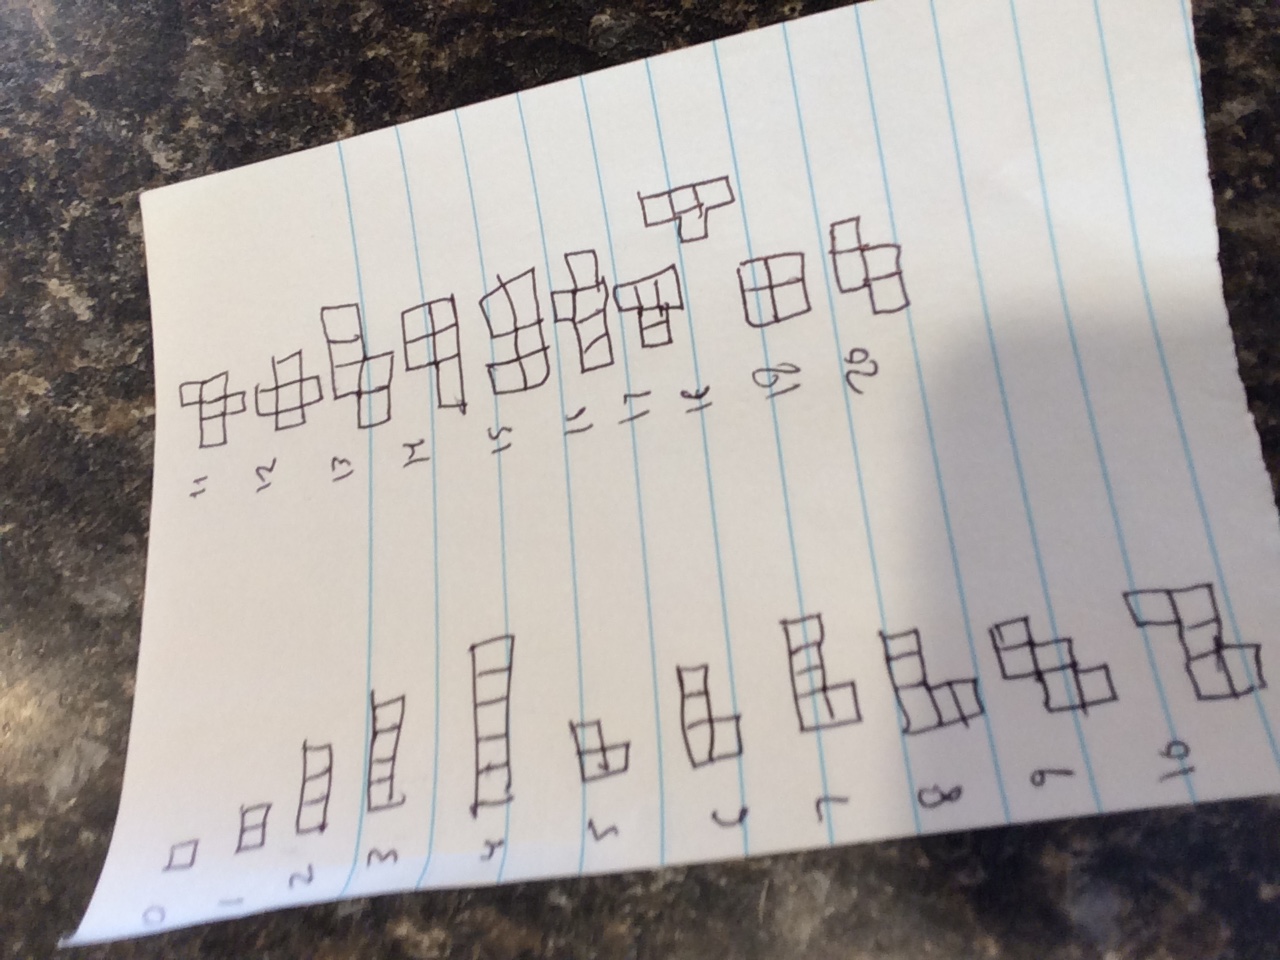 0
1
2
3
4
5
6
7
8
9
10
11
12
13
14
15
16
17
18
19
20